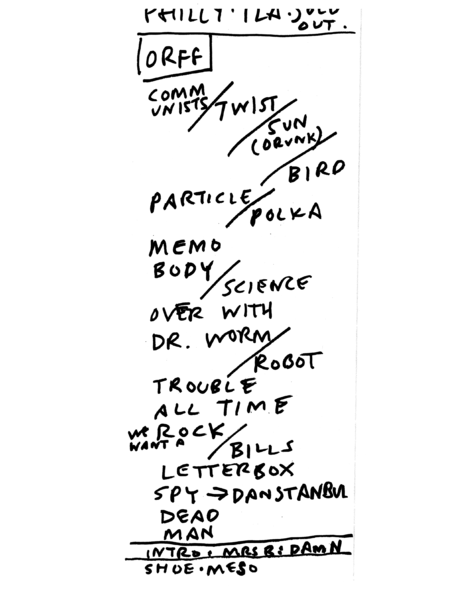 PHILLY · TLA · SOLD
OUT.
ORFF
COMM
UNISTS / TWIST
/ SUN
(DRUNK)
/ BIRD
PARTICLE
/ POLKA
MEMO
BODY
/ SCIENCE
OVER WITH
DR. WORM
/ ROBOT
TROUBLE
ALL TIME
WE
WANT A ROCK
/ BILLS
LETTERBOX
SPY → DANSTANBUL
DEAD
MAN
INTRO: MRS R: DAMN
SHOE · MESO